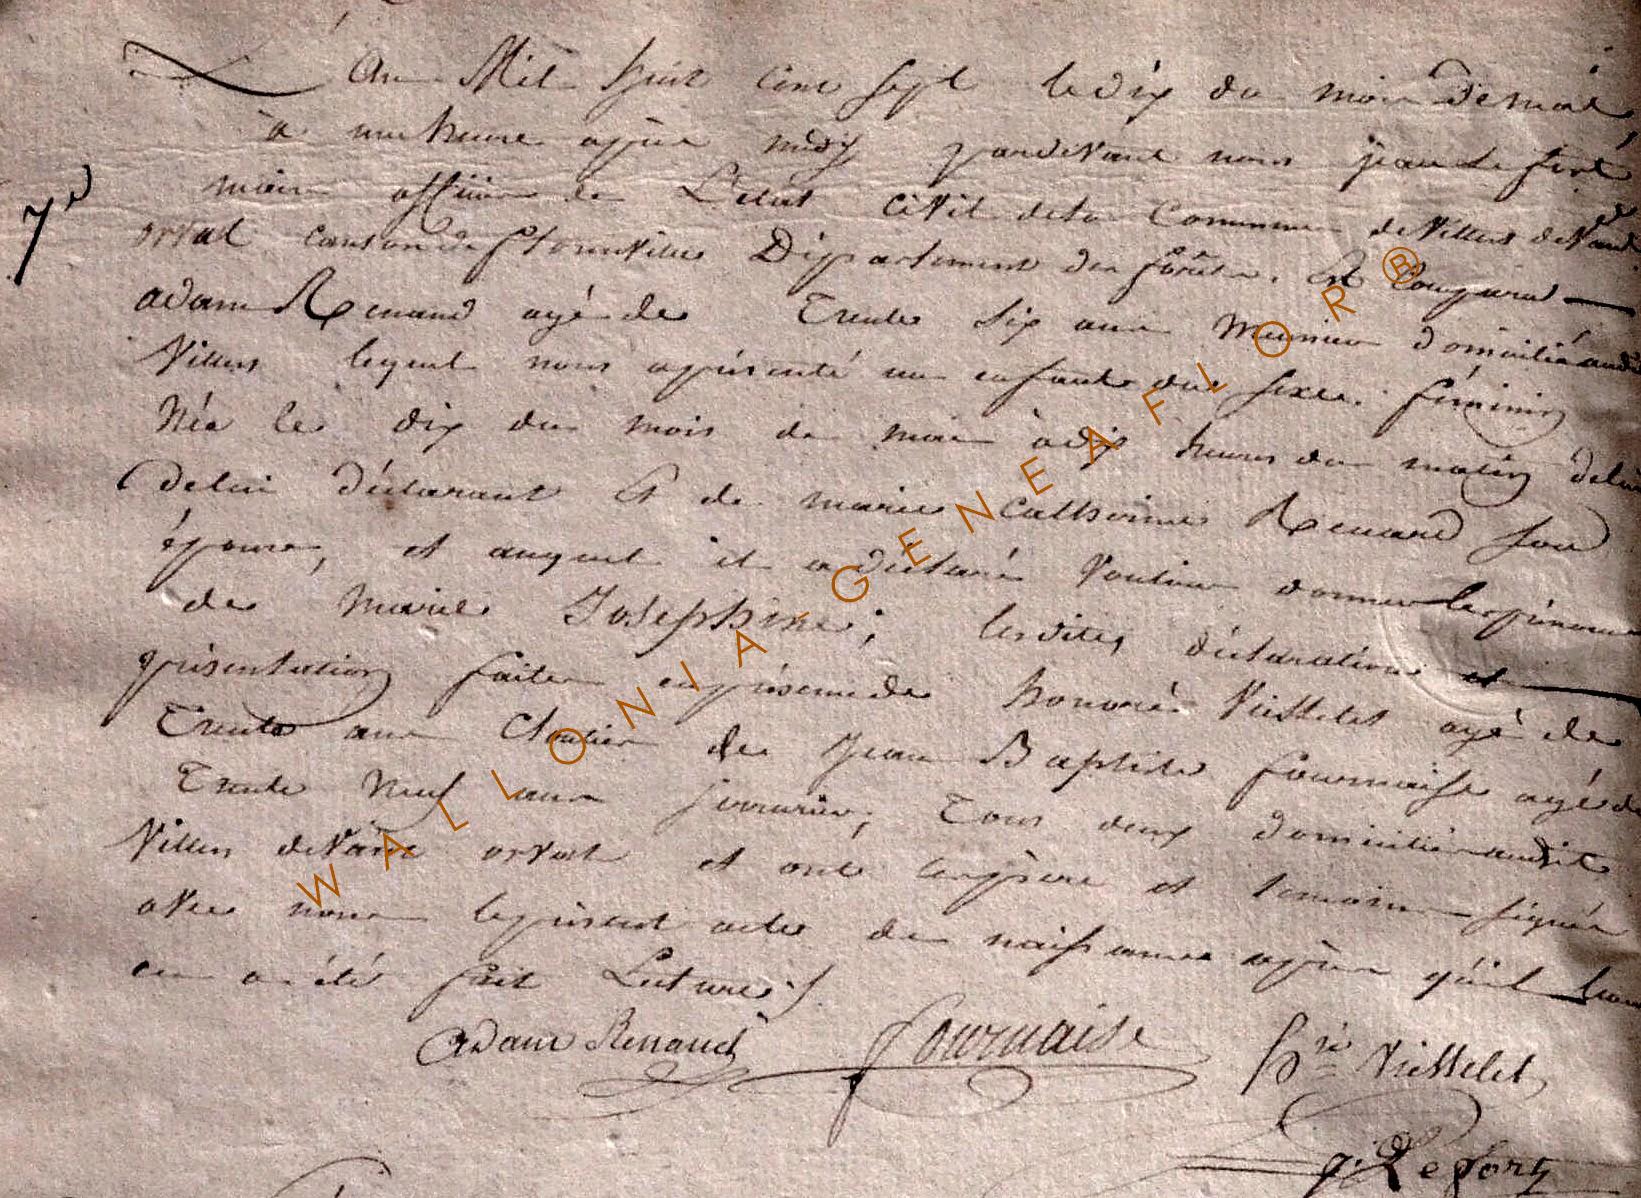 L'An Mil huit cent sept le dix du mois de mai,
à une heure après midy pardevant nous jean Le fort
7e
maire officier de L'etat civil de la Commune de Villers devant
orval canton de florenville Département des forêts. Est Comparu
adam Renaud agé de Trente six ans Meunier domicilié audit
Villers lequel nous a présenté un enfant du sexe féminin
Née le dix du mois de mai à dix heures du matin delui
Delui déclarant Et de marie Catherine Renard son
épouse, et auquel il a déclaré Vouloir donner les prénoms
de Marie Josephine; lesdites déclaration et
présentation faites en présence de honoré Visselet agé de
Trente ans Cloutier de Jean Baptiste fournaise agé de
Trente Neuf ans serrurier, Tous deux domiciliés audit
Villers devant orval et ont les père et temoins signés
avec nous le présent acte de naissance après qu'il leur
en a été fait Lecture ./.
adam Renaud fournaise h.ré Visselet
j. Le fort
WALLONIA-GENEAFLOR®